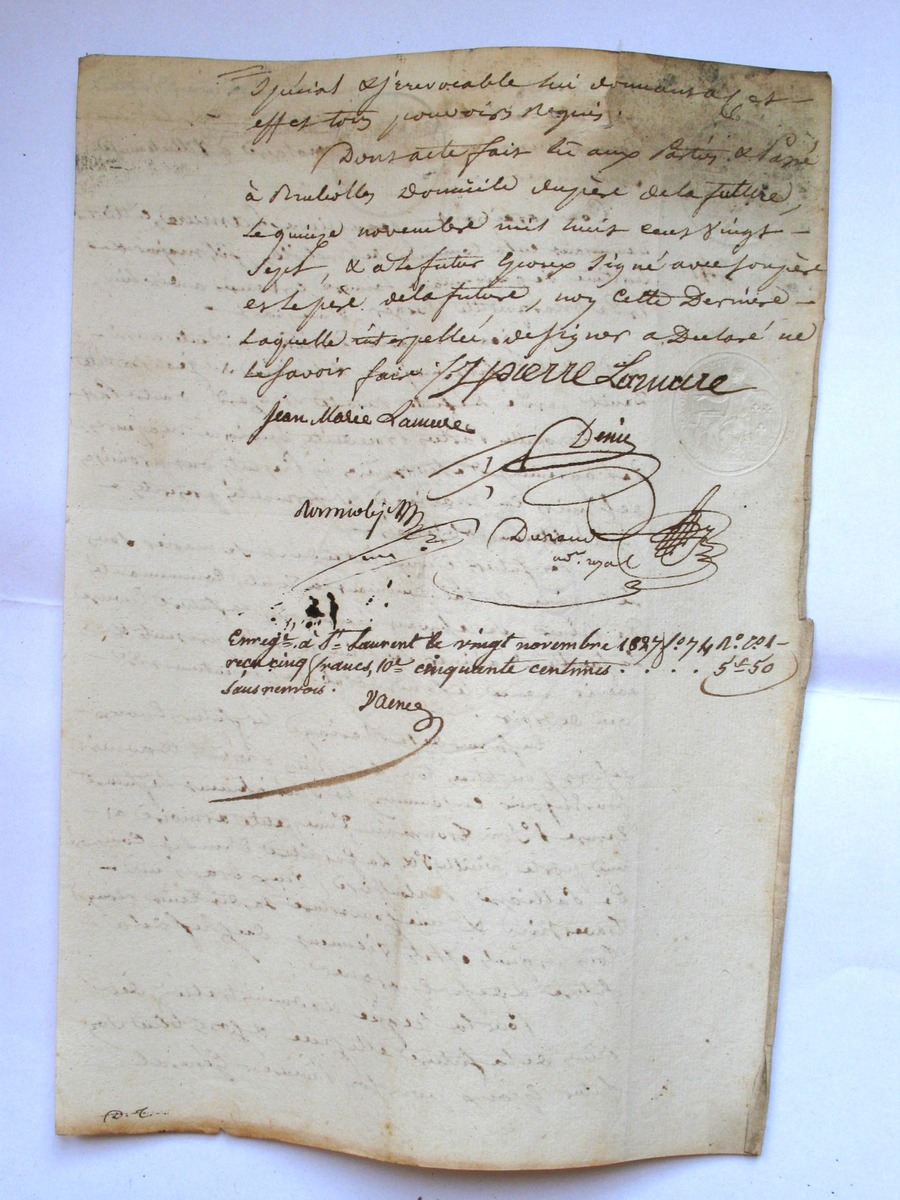 Spécial & jrrevocable lui donnant a Cet
effet tous pouvoirs Requis.
Dont acte fait lu aux Parties & Passé
à Brullolles Domicile du père de la future,
Le quinze novembre mil huit cent Vingt
Sept, & a le futur Epoux Signé avec son père
et le père de la future, non Cette Derniere
Laquelle interpellée de signer a Declaré ne
le savoir faire pierre Lamure
Jean Marie Lamure
Denis
Durand
nore. royal
Enregté. à St. Laurent le vingt novembre 1827 fo. 74 Ro. Co. 1
reçu cinq francs, 10e. cinquante centimes . . . . 5f-50
Sans renvois.
D. T.